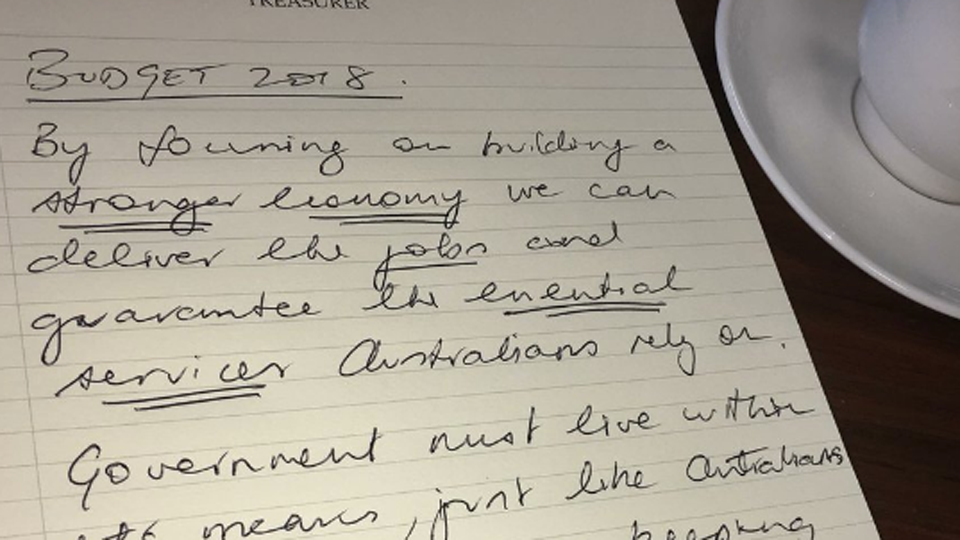 TREASURER
BUDGET 2018.
By focusing on building a
stronger economy we can
deliver the jobs and
guarantee the essential
services Australians rely on.
Government must live within
its means, just like Australians
keeping